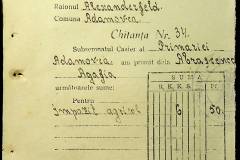 Raionul Alexanderfeld
Comuna Adamovca
Chitanța Nr. 34.
Subsemnatul Casier al Primariei
Adamovca am primit dela Abrascenco
Agafia
următoarele sume:
Pentru
SUMA
R.K.K.S.
Impozit agricol 6 50